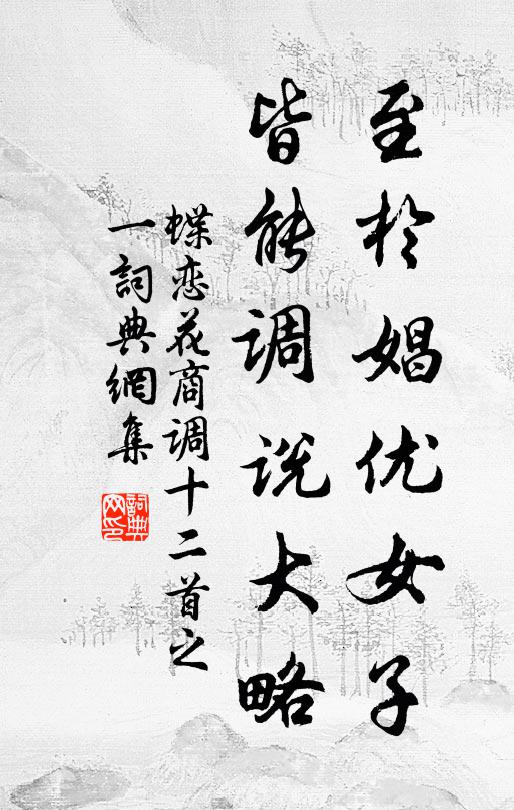 至於娼优女子
皆能调说大略
蝶恋花商调十二首之
一詞典網集
詞典网印